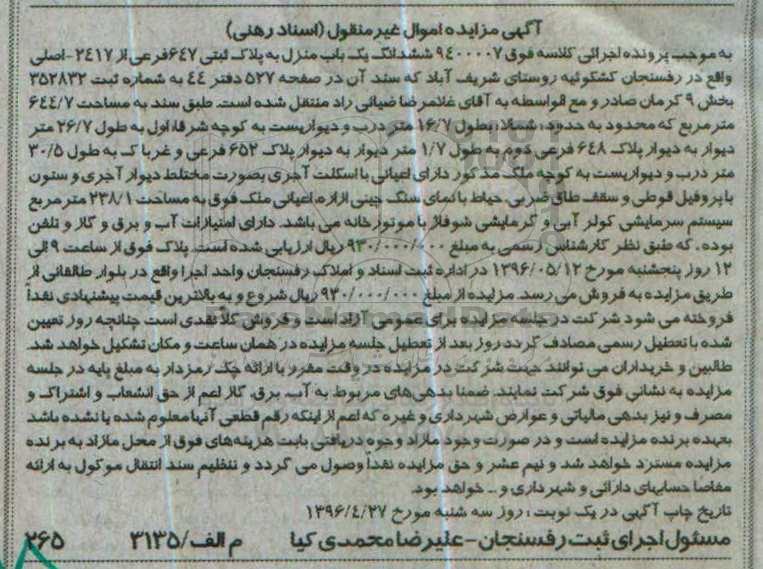 آگهی مزایده اموال غیر منقول (اسناد رهنی)
به موجب پرونده اجرائی کلاسه فوق ۹۴۰۰۰۰۷ ششدانگ یک باب منزل به پلاک ثبتی ۶۴۷ فرعی از ۲۴۱۷- اصلی
واقع در رفسنجان کشکوئیه روستای شریف آباد که سند آن در صفحه ۵۲۷ دفتر ۴۴ به شماره ثبت ۳۵۲۸۳۲
بخش ۹ کرمان صادر و مع الواسطه به آقای غلامرضا ضیائی راد منتقل شده است. طبق سند به مساحت ۶۴۴/۷
متر مربع که محدود به حدود: شمالا: بطول ۱۶/۷ متر درب و دیواریست به کوچه شرقا: اول به طول ۲۶/۷ متر
دیوار به دیوار پلاک ۶۴۸ فرعی دوم به طول ۱/۷ متر دیوار به دیوار پلاک ۶۵۲ فرعی و غربا ک به طول ۳۰/۵
متر درب و دیواریست به کوچه ملک مذکور دارای اعیانی با اسکلت آجری بصورت مختلط دیوار آجری و ستون
با پروفیل قوطی و سقف طاق ضربی. حیاط با نمای سنگ چینی ازاره، اعیانی ملک فوق به مساحت ۲۳۸/۱ متر مربع
سیستم سرمایشی کولر آبی و گرمایشی شوفاژ با موتورخانه می باشد. دارای امتیازات آب و برق و گاز و تلفن
بوده، که طبق نظر کارشناس رسمی به مبلغ ۹۳۰/۰۰۰/۰۰۰ ریال ارزیابی شده است. پلاک فوق از ساعت ۹ الی
۱۲ روز پنجشنبه مورخ ۱۳۹۶/۰۵/۱۲ در اداره ثبت اسناد و املاک رفسنجان واحد اجرا واقع در بلوار طالقانی از
طریق مزایده به فروش می رسد. مزایده از مبلغ ۹۳۰/۰۰۰/۰۰۰ ریال شروع و به بالاترین قیمت پیشنهادی نقداً
فروخته می شود شرکت در جلسه مزایده برای عموم آزاد است و فروش کلا نقدی است چنانچه روز تعیین
شده با تعطیل رسمی مصادف گردد روز بعد از تعطیل جلسه مزایده در همان ساعت و مکان تشکیل خواهد شد.
طالبین و خریداران می توانند جهت شرکت در مزایده در وقت مقرر با ارائه چک رمزدار به مبلغ پایه در جلسه
مزایده به نشانی فوق شرکت نمایند. ضمنا بدهی های مربوط به آب، برق، گاز اعم از حق انشعاب و اشتراک و
مصرف و نیز بدهی مالیاتی و عوارض شهرداری و غیره که اعم از اینکه رقم قطعی آنها معلوم شده یا نشده باشد
بعهده برنده مزایده است و در صورت وجود مازاد وجوه دریافتی بابت هزینه های فوق از محل مازاد به برنده
مزایده مسترد خواهد شد و نیم عشر و حق مزایده نقداً وصول می گردد و تنظیم سند انتقال موکول به ارائه
مفاصا حسابهای دارائی و شهرداری و... خواهد بود.
تاریخ چاپ آگهی در یک نوبت: روز سه شنبه مورخ ۱۳۹۶/۴/۲۷
مسئول اجرای ثبت رفسنجان - علیرضا محمدی کیا م الف/۳۱۳۵ ۲۶۵